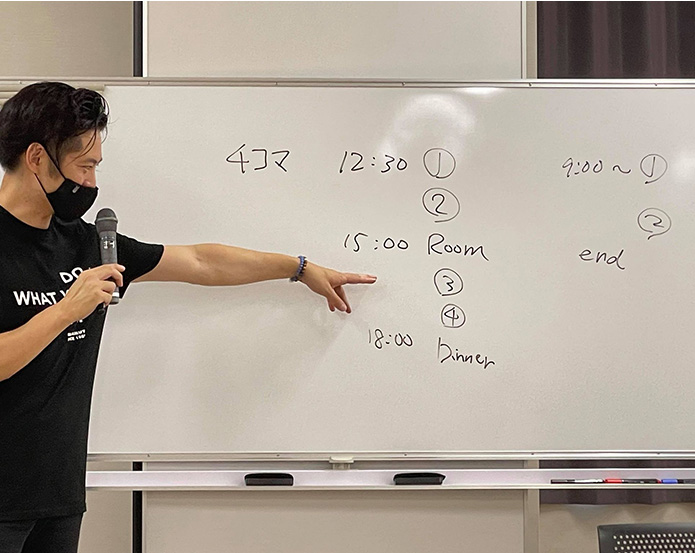 4コマ 12:30 ①
②
15:00 Room
③
④
18:00 Dinner
9:00~ ①
②
end
DO
WHAT Y